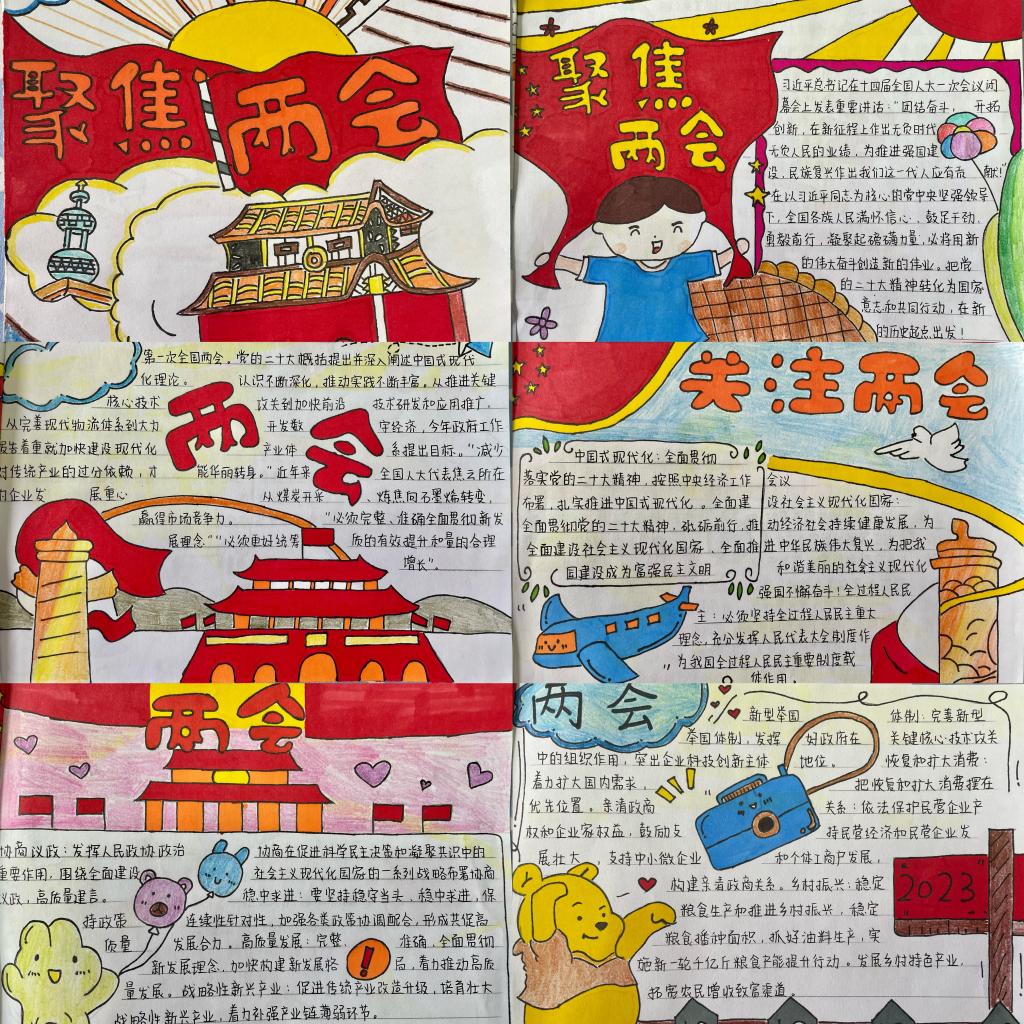 聚焦两会
聚焦
两会
习近平总书记在十四届全国人大一次会议闭
幕会上发表重要讲话:“团结奋斗, 开拓
创新,在新征程上作出无负时代
无负人民的业绩,为推进强国建
设、民族复兴作出我们这一代人应有贡 献!”
在以习近平同志为核心的党中央坚强领导
下,全国各族人民满怀信心、鼓足干劲,
勇毅前行,凝聚起磅礴力量,必将用新
的伟大奋斗创造新的伟业。把党
的二十大精神转化为国家
意志和共同行动,在新
的历史起点出发!
第一次全国两会。党的二十大概括提出并深入阐述中国式现代
化理论。 认识不断深化,推动实践不断丰富。从推进关键
核心技术 攻关到加快前沿 技术研发和应用推广,
从完善现代物流体系到大力 开发数 字经济,今年政府工作
报告着重就加快建设现代化 产业体 系提出目标。“减少
对传统产业的过分依赖,才 能华丽转身。”近年来 全国人大代表焦云所在
的企业发 展重心 从煤炭开采 、炼焦向石墨烯转变,
赢得市场竞争力。 “必须完整、准确全面贯彻新发
展理念”“必须更好统筹 质的有效提升和量的合理
增长”。
两会
关注两会
中国式现代化:全面贯彻
落实党的二十大精神,按照中央经济工作 会议
布署,扎实推进中国式现代化。全面建 设社会主义现代化国家:
全面贯彻党的二十大精神,砥砺前行,推 动经济社会持续健康发展,为
全面建设社会主义现代化国家、全面推 进中华民族伟大复兴,为把我
国建设成为富强民主文明 和谐美丽的社会主义现代化
强国不懈奋斗!全过程人民民
主:必须坚持全过程人民民主重大
理念,充分发挥人民代表大会制度作
为我国全过程人民民主重要制度载
体作用。
两会
协商议政:发挥人民政协政治 协商在促进科学民主决策和凝聚共识中的
重要作用,围绕全面建设 社会主义现代化国家的一系列战略布署协商
议政,高质量建言。 稳中求进:要坚持稳字当头,稳中求进,保
持政策 连续性针对性,加强各类政策协调配合,形成共促高
质量 发展合力。高质量发展:完整、 准确,全面贯彻
新发展理念,加快构建新发展格 局,着力推动高质
量发展。战略性新兴产业:促进传统产业改造升级,培育壮大
战略性新兴产业,着力补强产业链薄弱环节。
!
两会
新型举国 体制:完善新型
举国体制,发挥 好政府在 关键核心技术攻关
中的组织作用,突出企业科技创新主体 地位。 恢复和扩大消费:
着力扩大国内需求, 把恢复和扩大消费摆在
优先位置。亲清政商 关系:依法保护民营企业产
权和企业家权益,鼓励支 持民营经济和民营企业发
展壮大,支持中小微企业 和个体工商户发展,
构建亲清政商关系。乡村振兴:稳定
粮食生产和推进乡村振兴,稳定
粮食播种面积,抓好油料生产,实
施新一轮千亿斤粮食产能提升行动。发展乡村特色产业,
拓宽农民增收致富渠道。
2023